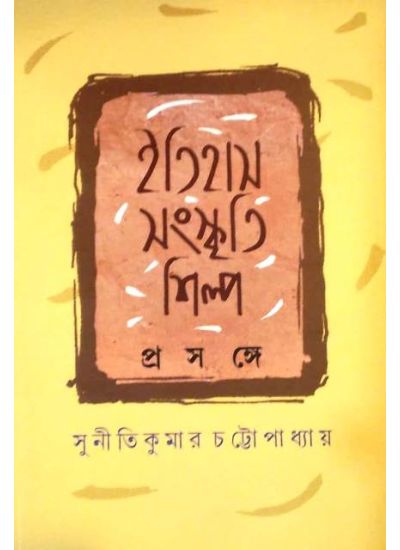 ইতিহাস
সংস্কৃতি
শিল্প
প্রসঙ্গে
সুনীতিকুমার চট্টোপাধ্যায়